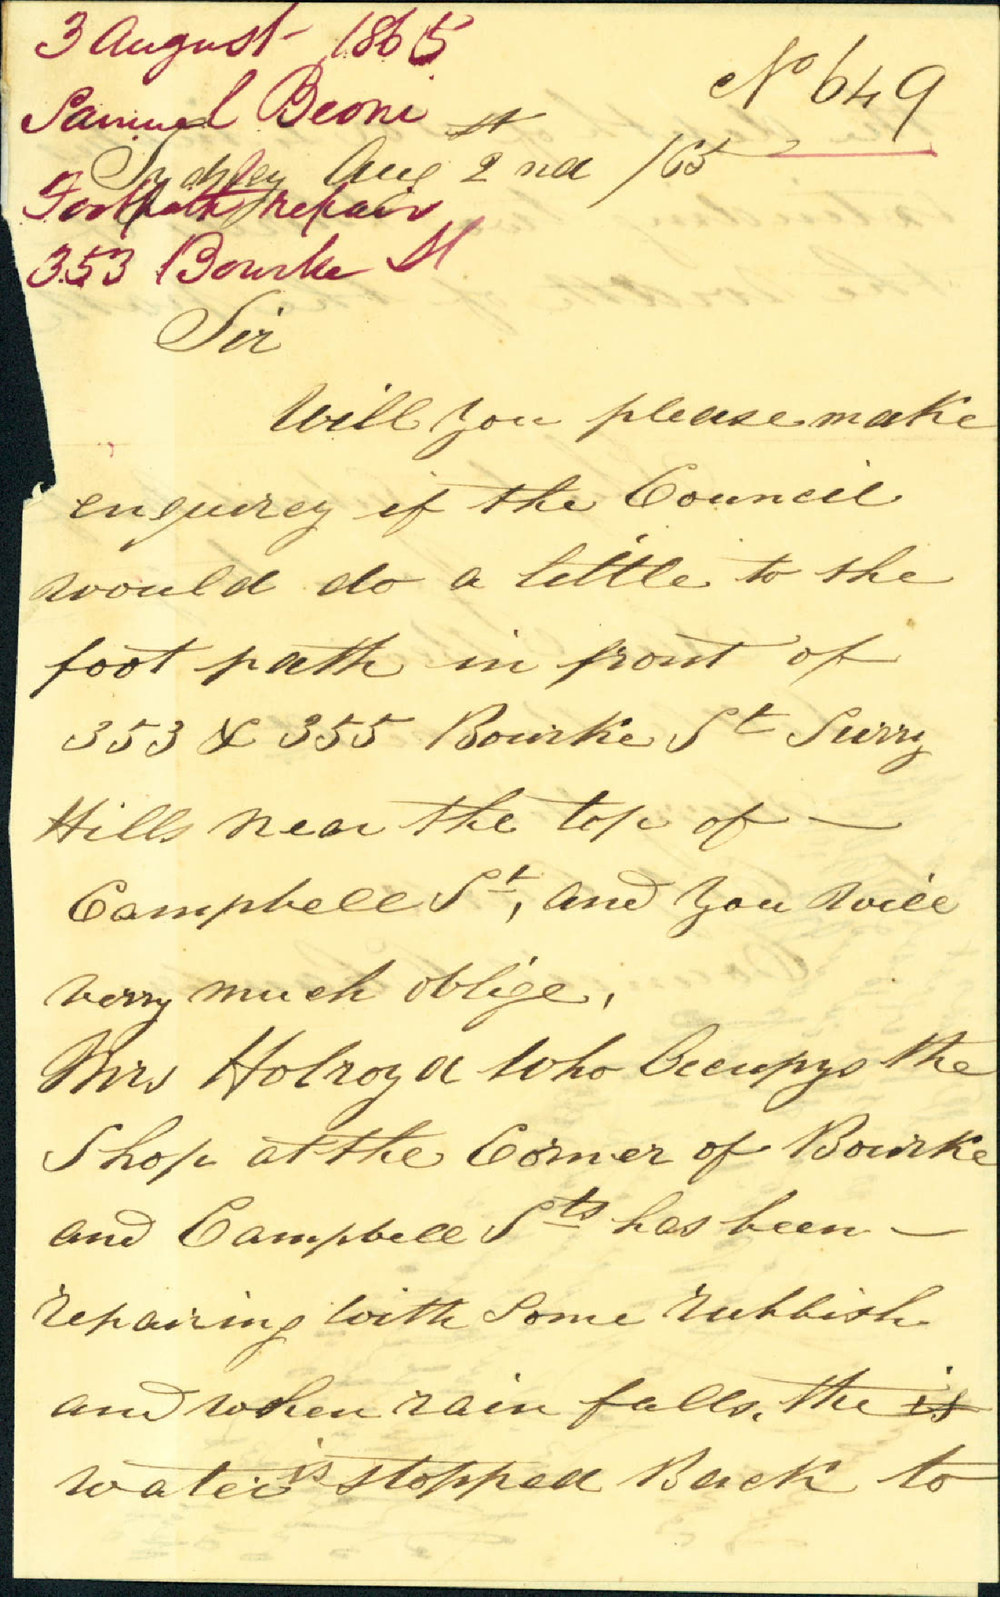 3 August 1865
No 649
Samuel Beone
Sydney Aug 2nd /65
Footpath repair
353 Bourke St
Sir
Will you please make
enquirey if the Council
would do a little to the
foot path in front of
353 & 355 Bourke St Surry
Hills near the top of —
Campbell St, and you will
verry much oblige,
Mrs Holroyd who Occupys the
Shop at the Corner of Bourke
and Campbell Sts has been —
repairing with Some rubbish
and when rain falls, the is
water is stopped Back to